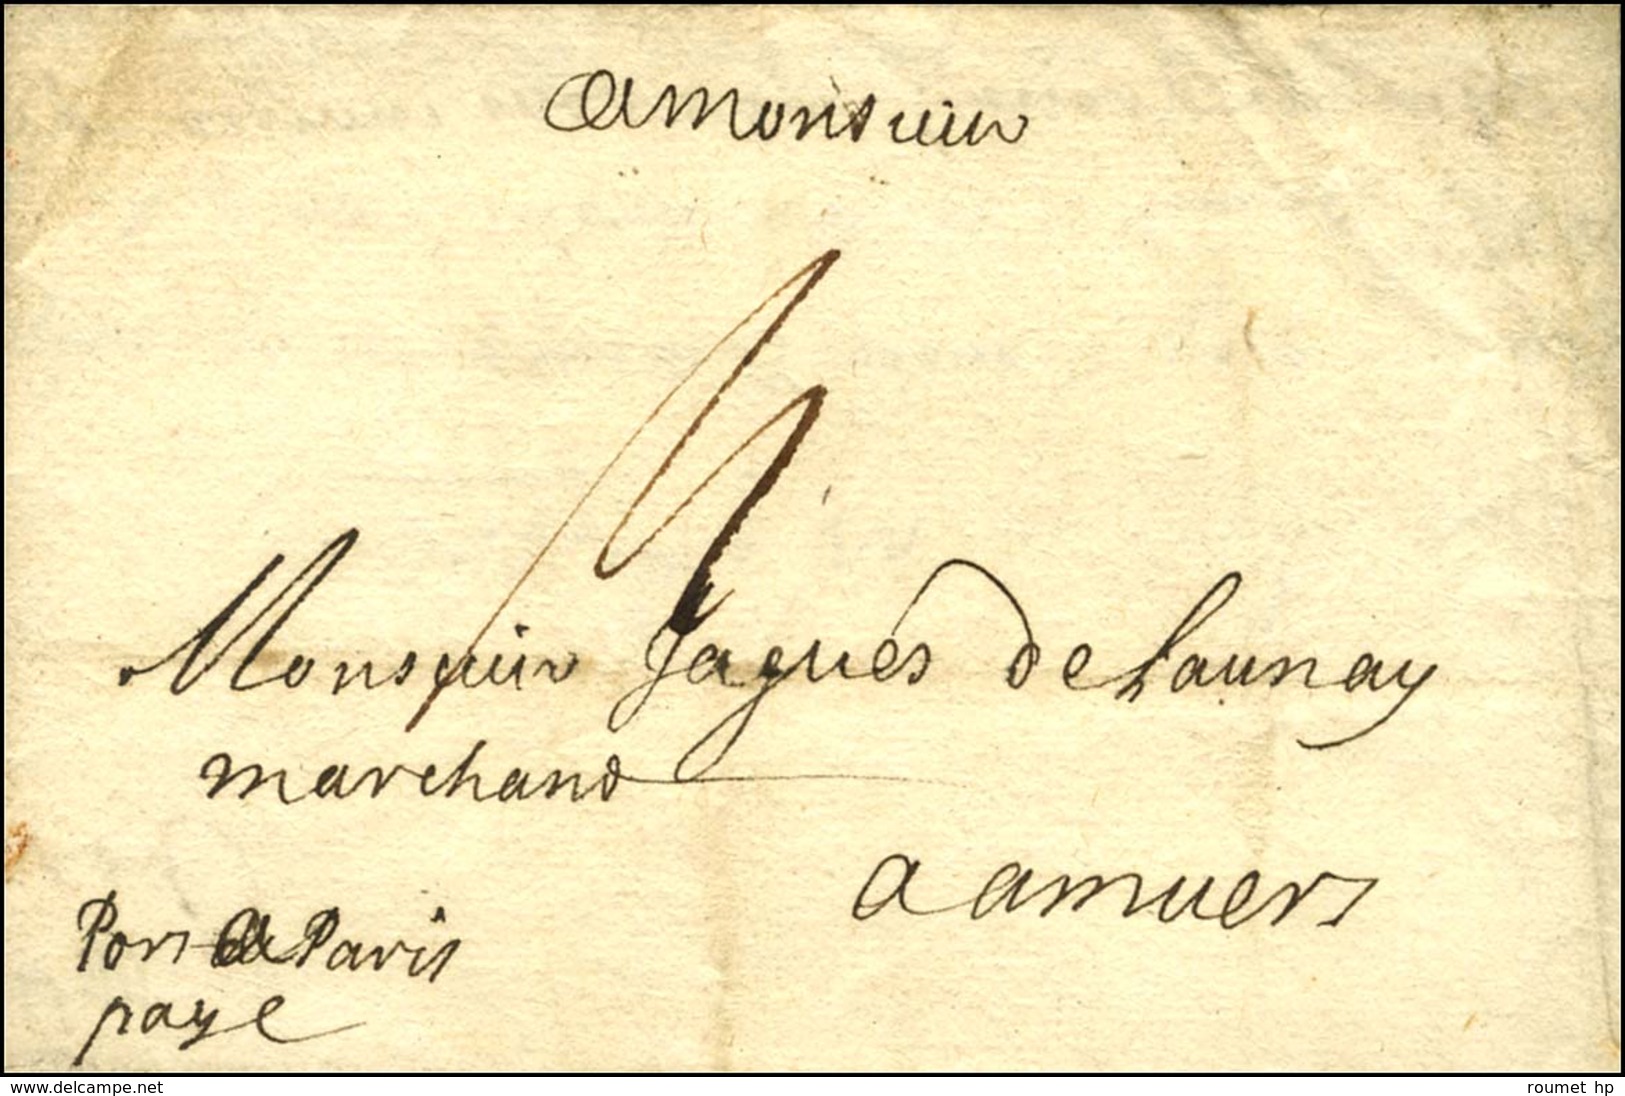 a monsieur
4
Monsieur Jaques deLaunay
marchand
a anvers
Port a Paris
paye
www.delcampe.net
roumet hp